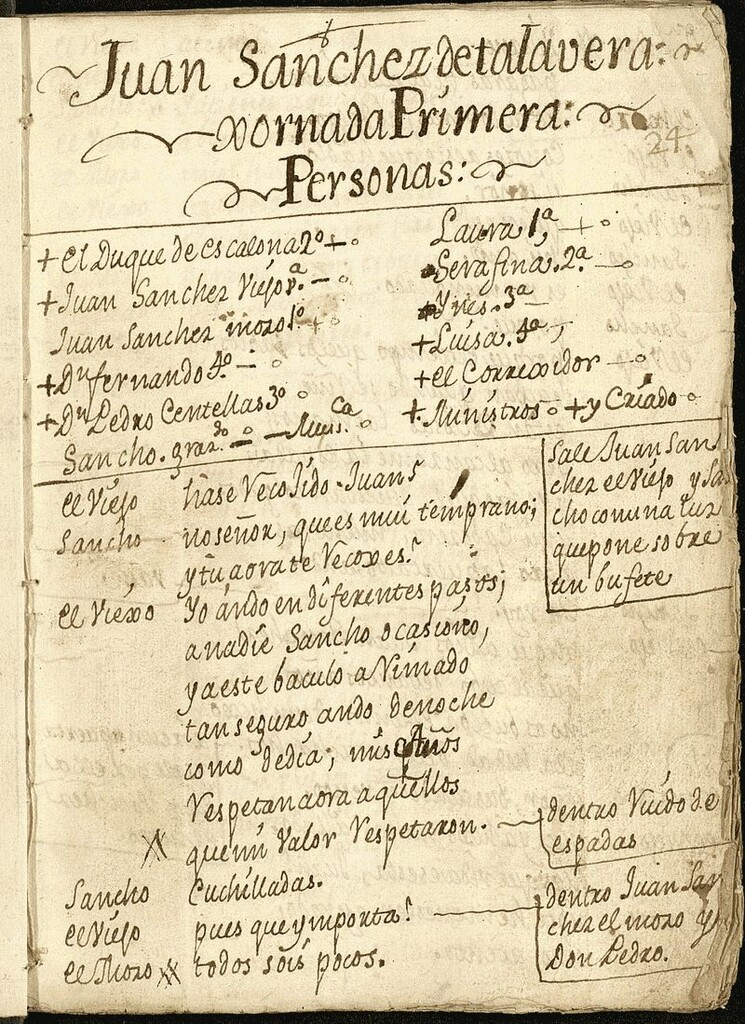 Juan Sanchez de talavera:
xornada Primera:
24
Personas:
+ el Duque de escalona 2º + - o
+ Juan Sanchez Viejo Vª. - o
Juan Sanchez mozo 1º - + o
+ Dn fernando 4º - o
+ Dn Pedro Centellas 3º o
Sancho. graz.do - o - Mus.ca o
Laura 1ª, + o
Serafina. 2ª - o
+ Ynes. 3ª -
+ Luisa. 4ª,
+ el Correxidor - o
+ Ministros o + y Criado o
el Viejo hase Vecojido Juan?
Sancho no señor, que es mui temprano;
y tu aora te Vecoxes?
el Viexo Yo ando en diferentes pasos;
a nadie Sancho ocasiono,
y a este baculo aVimado
tan seguro ando de noche
como de dia; mis Años
Vespetan aora aquellos
que mi Valor Vespetaron.
Sancho Cuchilladas.
el Viejo pues que ymporta?
el Mozo todos sois pocos.
Sale Juan San
chez el Viejo y Sa
cho con una luz
que pone sobre
un bufete
dentro Vuido de
espadas
dentro Juan San
chez el mozo y
Don Pedro.